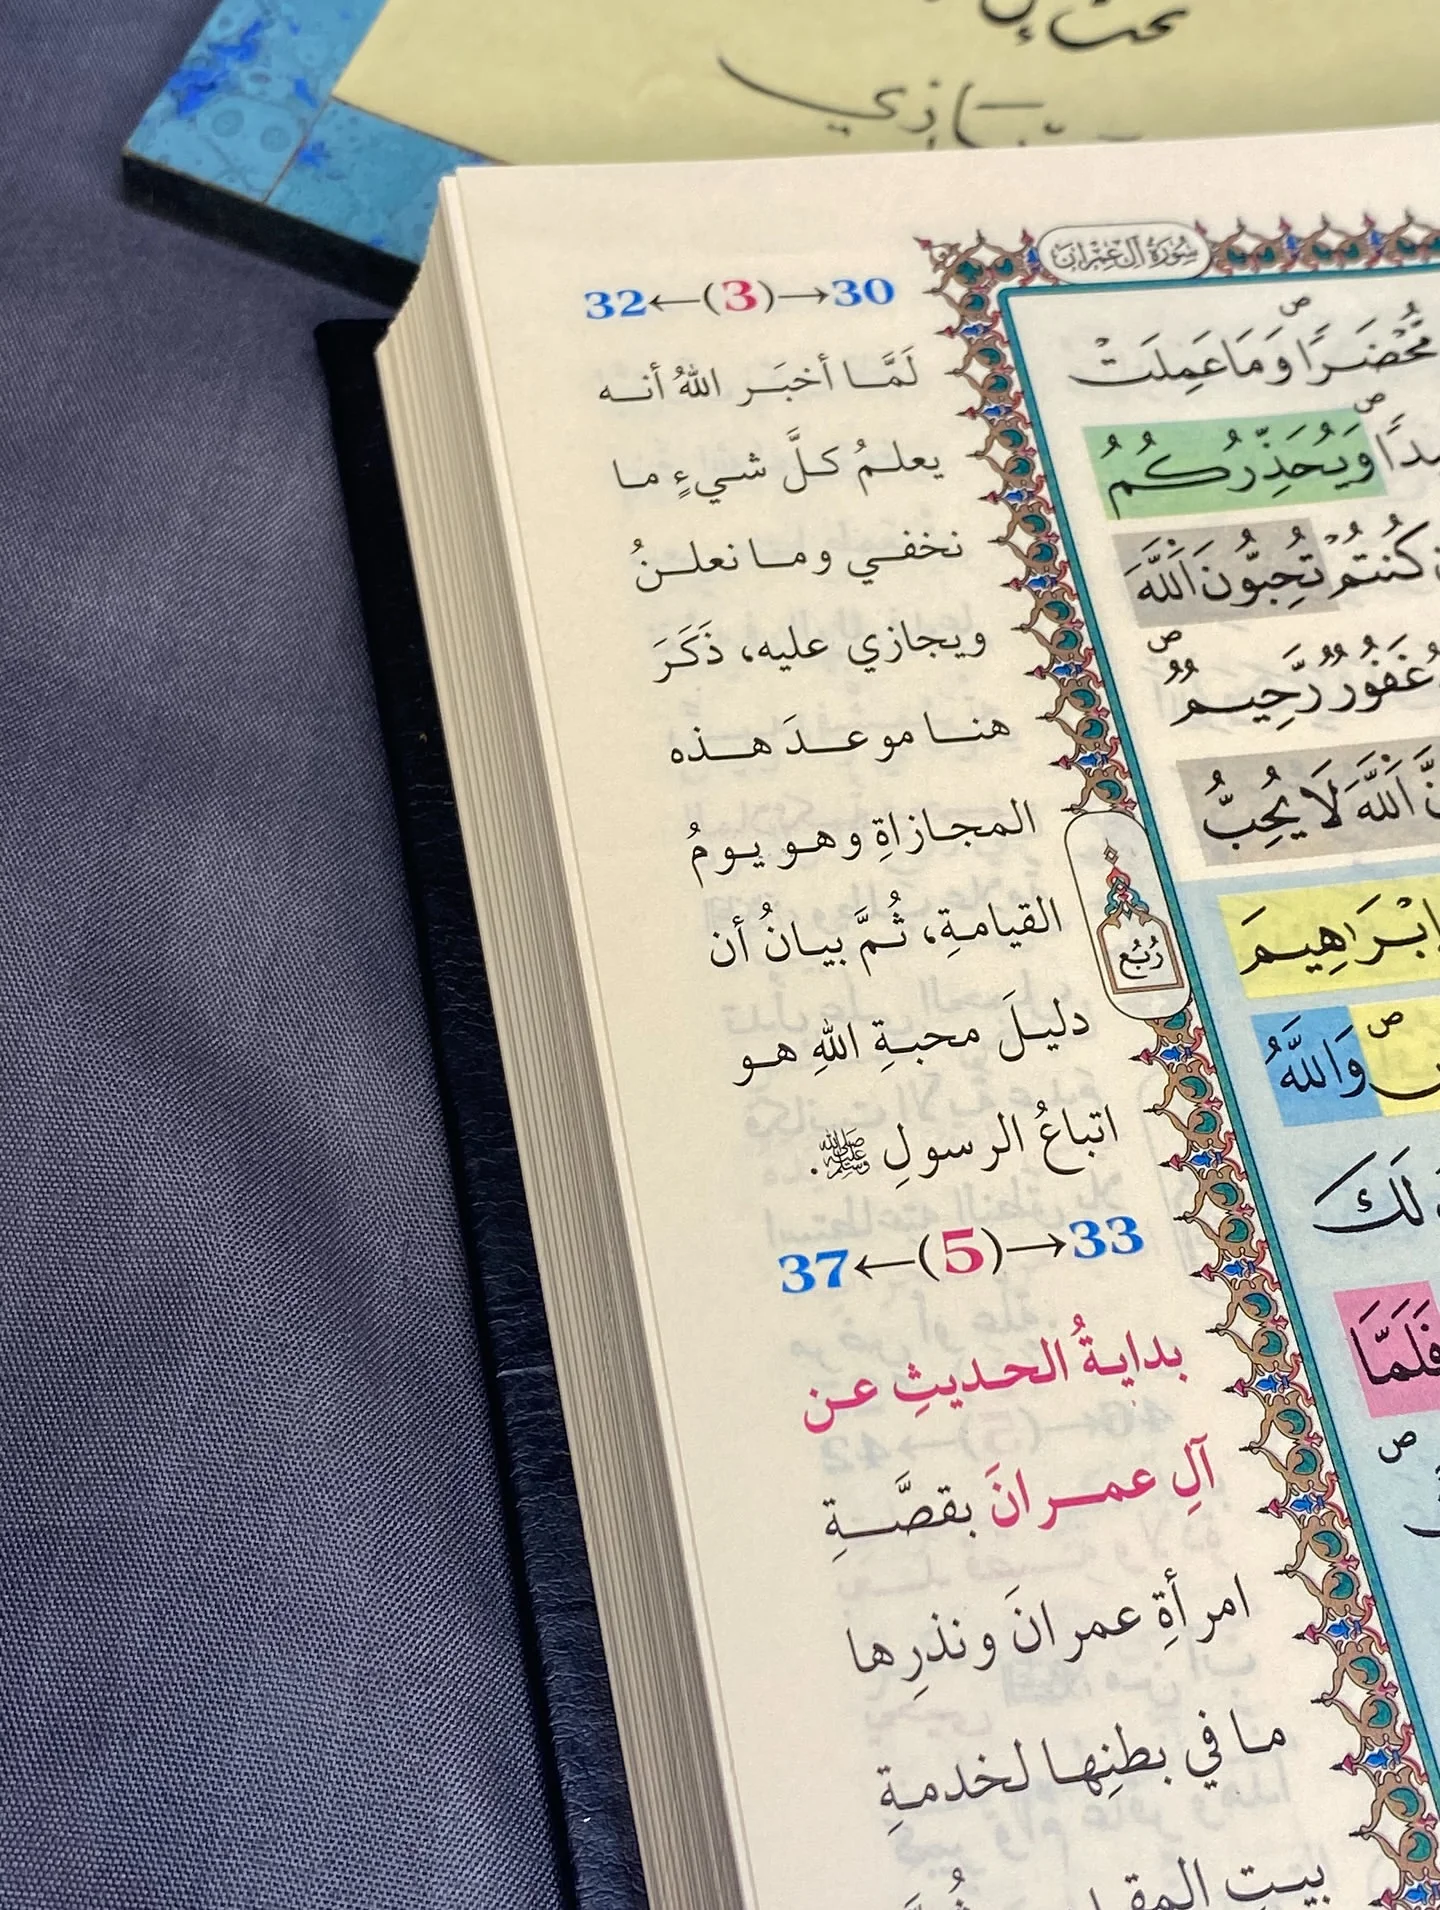 سُورَةُ آلِ عِمْرَانَ
مُّحْضَرًا وَمَا عَمِلَتْ
وَيُحَذِّرُكُمُ
كُنتُمْ تُحِبُّونَ اللَّهَ
غَفُورٌ رَّحِيمٌ
اللَّهَ لَا يُحِبُّ
إِبْرَاهِيمَ
وَاللَّهُ
لَكَ
فَلَمَّا
رُبُع
32←(3)→30
لَمَّا أخبَر اللهُ أنه
يعلمُ كلَّ شيءٍ ما
نخفي وما نعلنُ
ويجازي عليه، ذَكَرَ
هنا موعدَ هذه
المجازاةِ وهو يومُ
القيامةِ، ثُمَّ بيانُ أن
دليلَ محبةِ اللهِ هو
اتباعُ الرسولِ ﷺ.
37←(5)→33
بدايةُ الحديثِ عن
آلِ عمرانَ بقصَّةِ
امرأةِ عمرانَ ونذرِها
ما في بطنِها لخدمةِ
بيتِ